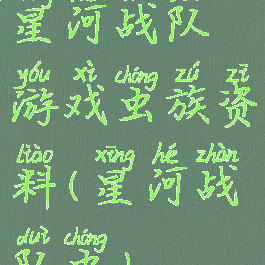 星河战队
yóu xì chóng zú zī
游戏虫族资
liào xīng hé zhàn
料(星河战
duì chóng
队虫)